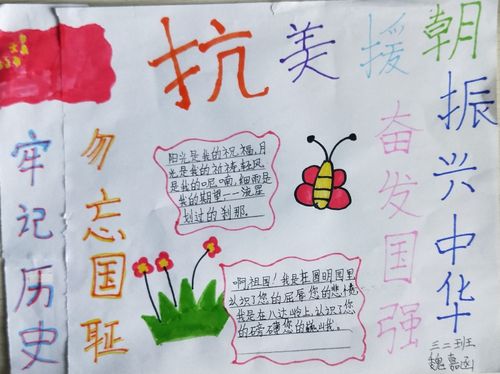 抗美援朝
振兴中华
奋发国强
勿忘国耻
牢记历史
阳光是我的祝福，月
光是我的祈祷，轻风
是我的呢喃，细雨是
我的期望——流星
划过的刹那。
啊，祖国！我是在圆明园里
认识了您的屈辱您的悲愤
我是在八达岭上，认识了您
的磅礴您的
三二班
魏嘉涵